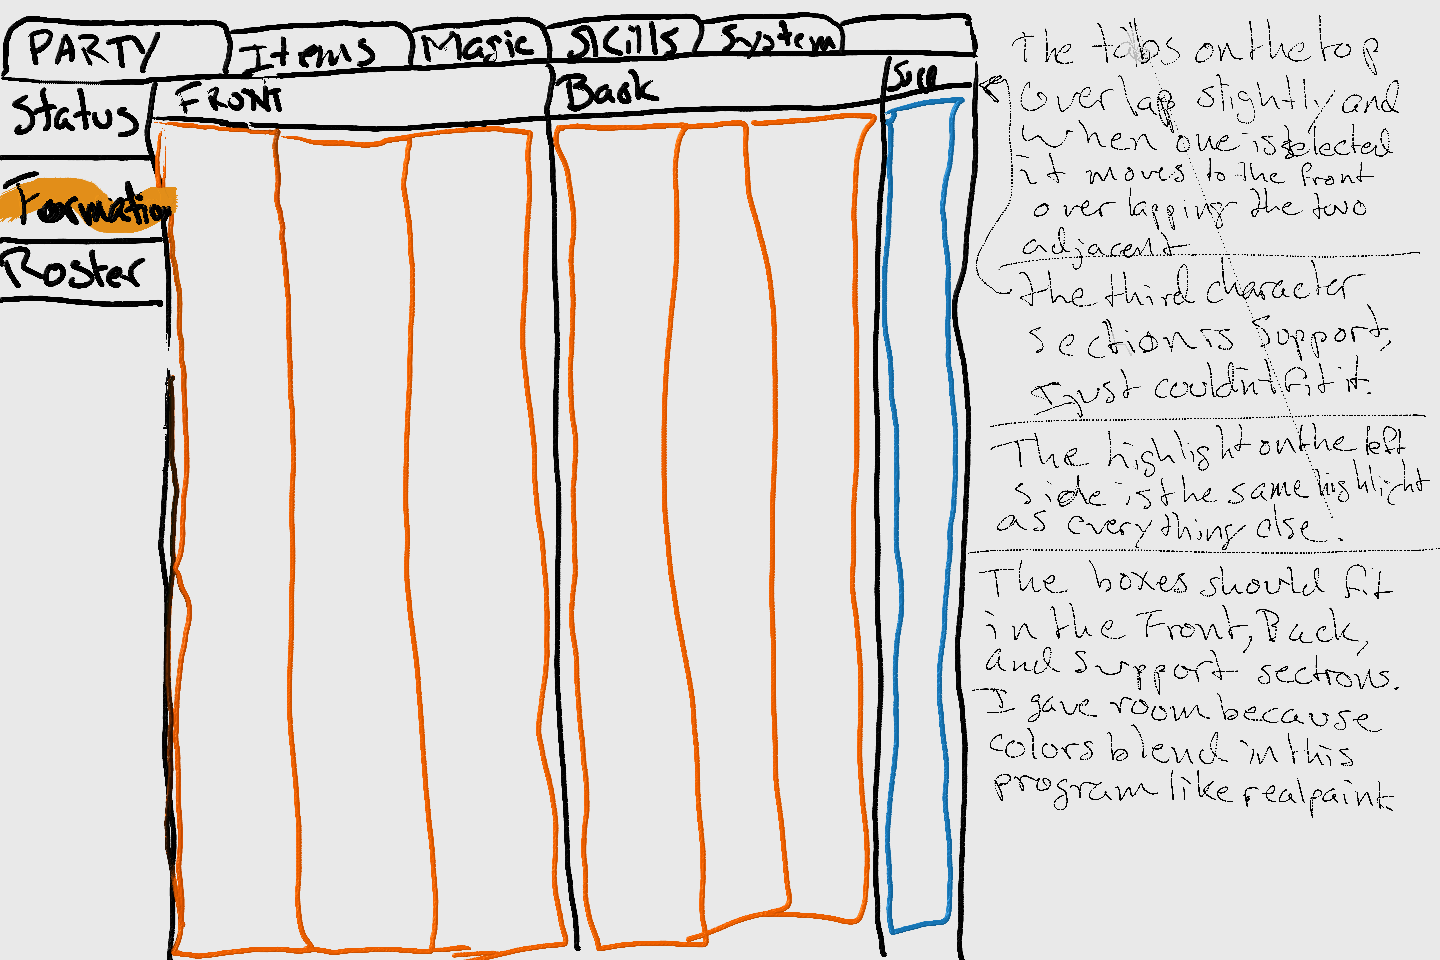 PARTY Items Magic Skills System
Status FRONT Back Supp
Formation
Roster
The tabs on the top
overlap slightly and
when one is selected
it moves to the front
overlapping the two
adjacent.
The third character
section is Support,
I just couldn't fit it.
The highlight on the left
side is the same highlight
as everything else.
The boxes should fit
in the Front, Back,
and Support sections.
I gave room because
colors blend in this
program like real paint